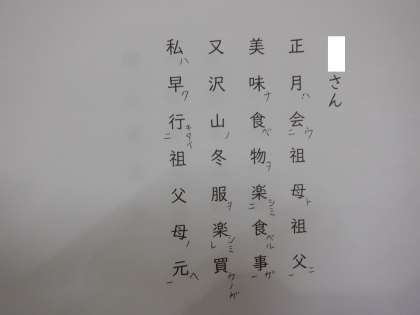 さん
正月ハ会ウ二祖母ト祖父ニ一
美味ナ食ベ物ヲ楽シミ二食ベル事ガ一
又沢山ノ冬服ヲ楽シミレ買ウノガ
私ハ早ク行二祖父母ノ元ヘ一